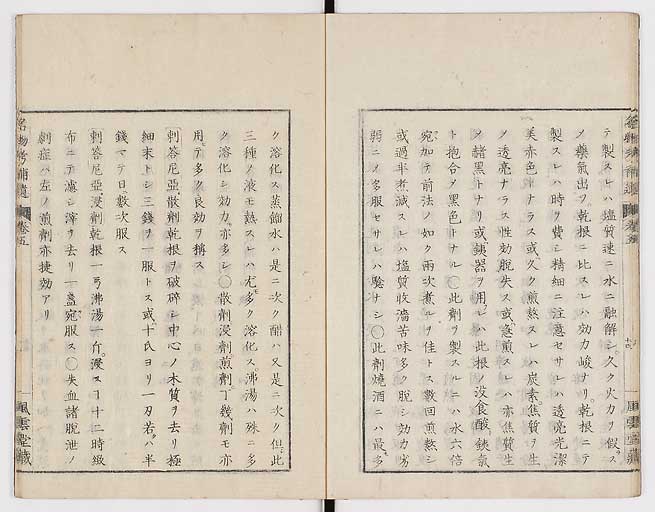 テ製スレハ塩質速ニ水ニ融解シ久ク火力ヲ假ス
ノ藥氣出ツ乾根ニ比スレハ効力峻ナリ乾根ニテ
製スレハ時ヲ費シ精細ニ注意セサレハ透亮光潔
美赤色トナラス或久ク煎熬スレハ炭素焦質ヲ生
ノ透亮ナラス性効脱失ス或急煎スレハ亦焦質生
ヲ赭黒トナリ或銕器ヲ用レハ此根ノ没食酸銕氣
ト抱合ヲ黒色トナル〇此劑ヲ製スルニハ水六倍
宛加テ前法ノ如ク兩次煮ルヲ佳トス數回煎熬シ
或過半煮减スレハ塩質收濇苦味多ク脱シ効力劣
弱ニノ多服セサレハ驗ナシ〇此劑燒酒ニハ最多
風雲堂藏
ク溶化ス蒸餾水ハ是ニ次ク醋ハ又是ニ次ク但此
三種ノ液モ熱スレハ尤多ク溶化ス沸湯ハ殊ニ多
ク溶化シ効力亦多シ〇散劑浸劑煎劑丁幾劑モ亦
用テ多ク良効ヲ稱ス
刺答尼亞散劑乾根ヲ破碎シ中心ノ木質ヲ去リ極
細末トシ三錢ヲ一服トス或十氏ヨリ一刃若ハ半
錢マテ日數次服ス
刺答尼亞浸劑乾根一弓沸湯一斤浸スコト十二時緻
布ニテ濾シ滓ヲ去リ一盞宛服ス〇失血諸脱泄ノ
劇症ハ左ノ煎劑亦捷効アリ
名物考補遺 卷五
風雲堂藏